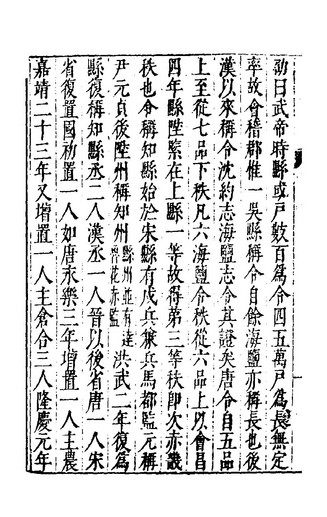 劭曰武帝時縣或戸數百爲令四五萬戸爲長無定
率故會稽郡惟一吳縣稱令自餘海鹽亦稱長也後
漢以來稱令沈約志海鹽志令其證矣唐令自五品
上至從七品下秩凡六海鹽令秩從六品上以會昌
四年縣陞緊在上縣一等故得第三等秩即次赤畿
秩也令稱知縣始於宋縣有戍兵兼兵馬都監元稱
尹元貞後陞州稱知州縣州並有達魯花赤監洪武二年復爲
縣復稱知縣丞二人漢丞一人晉以後省唐一人宋
省復置國初置一人如唐永樂三年增置一人主農
嘉靖二十三年又增置一人主倉合三人隆慶元年